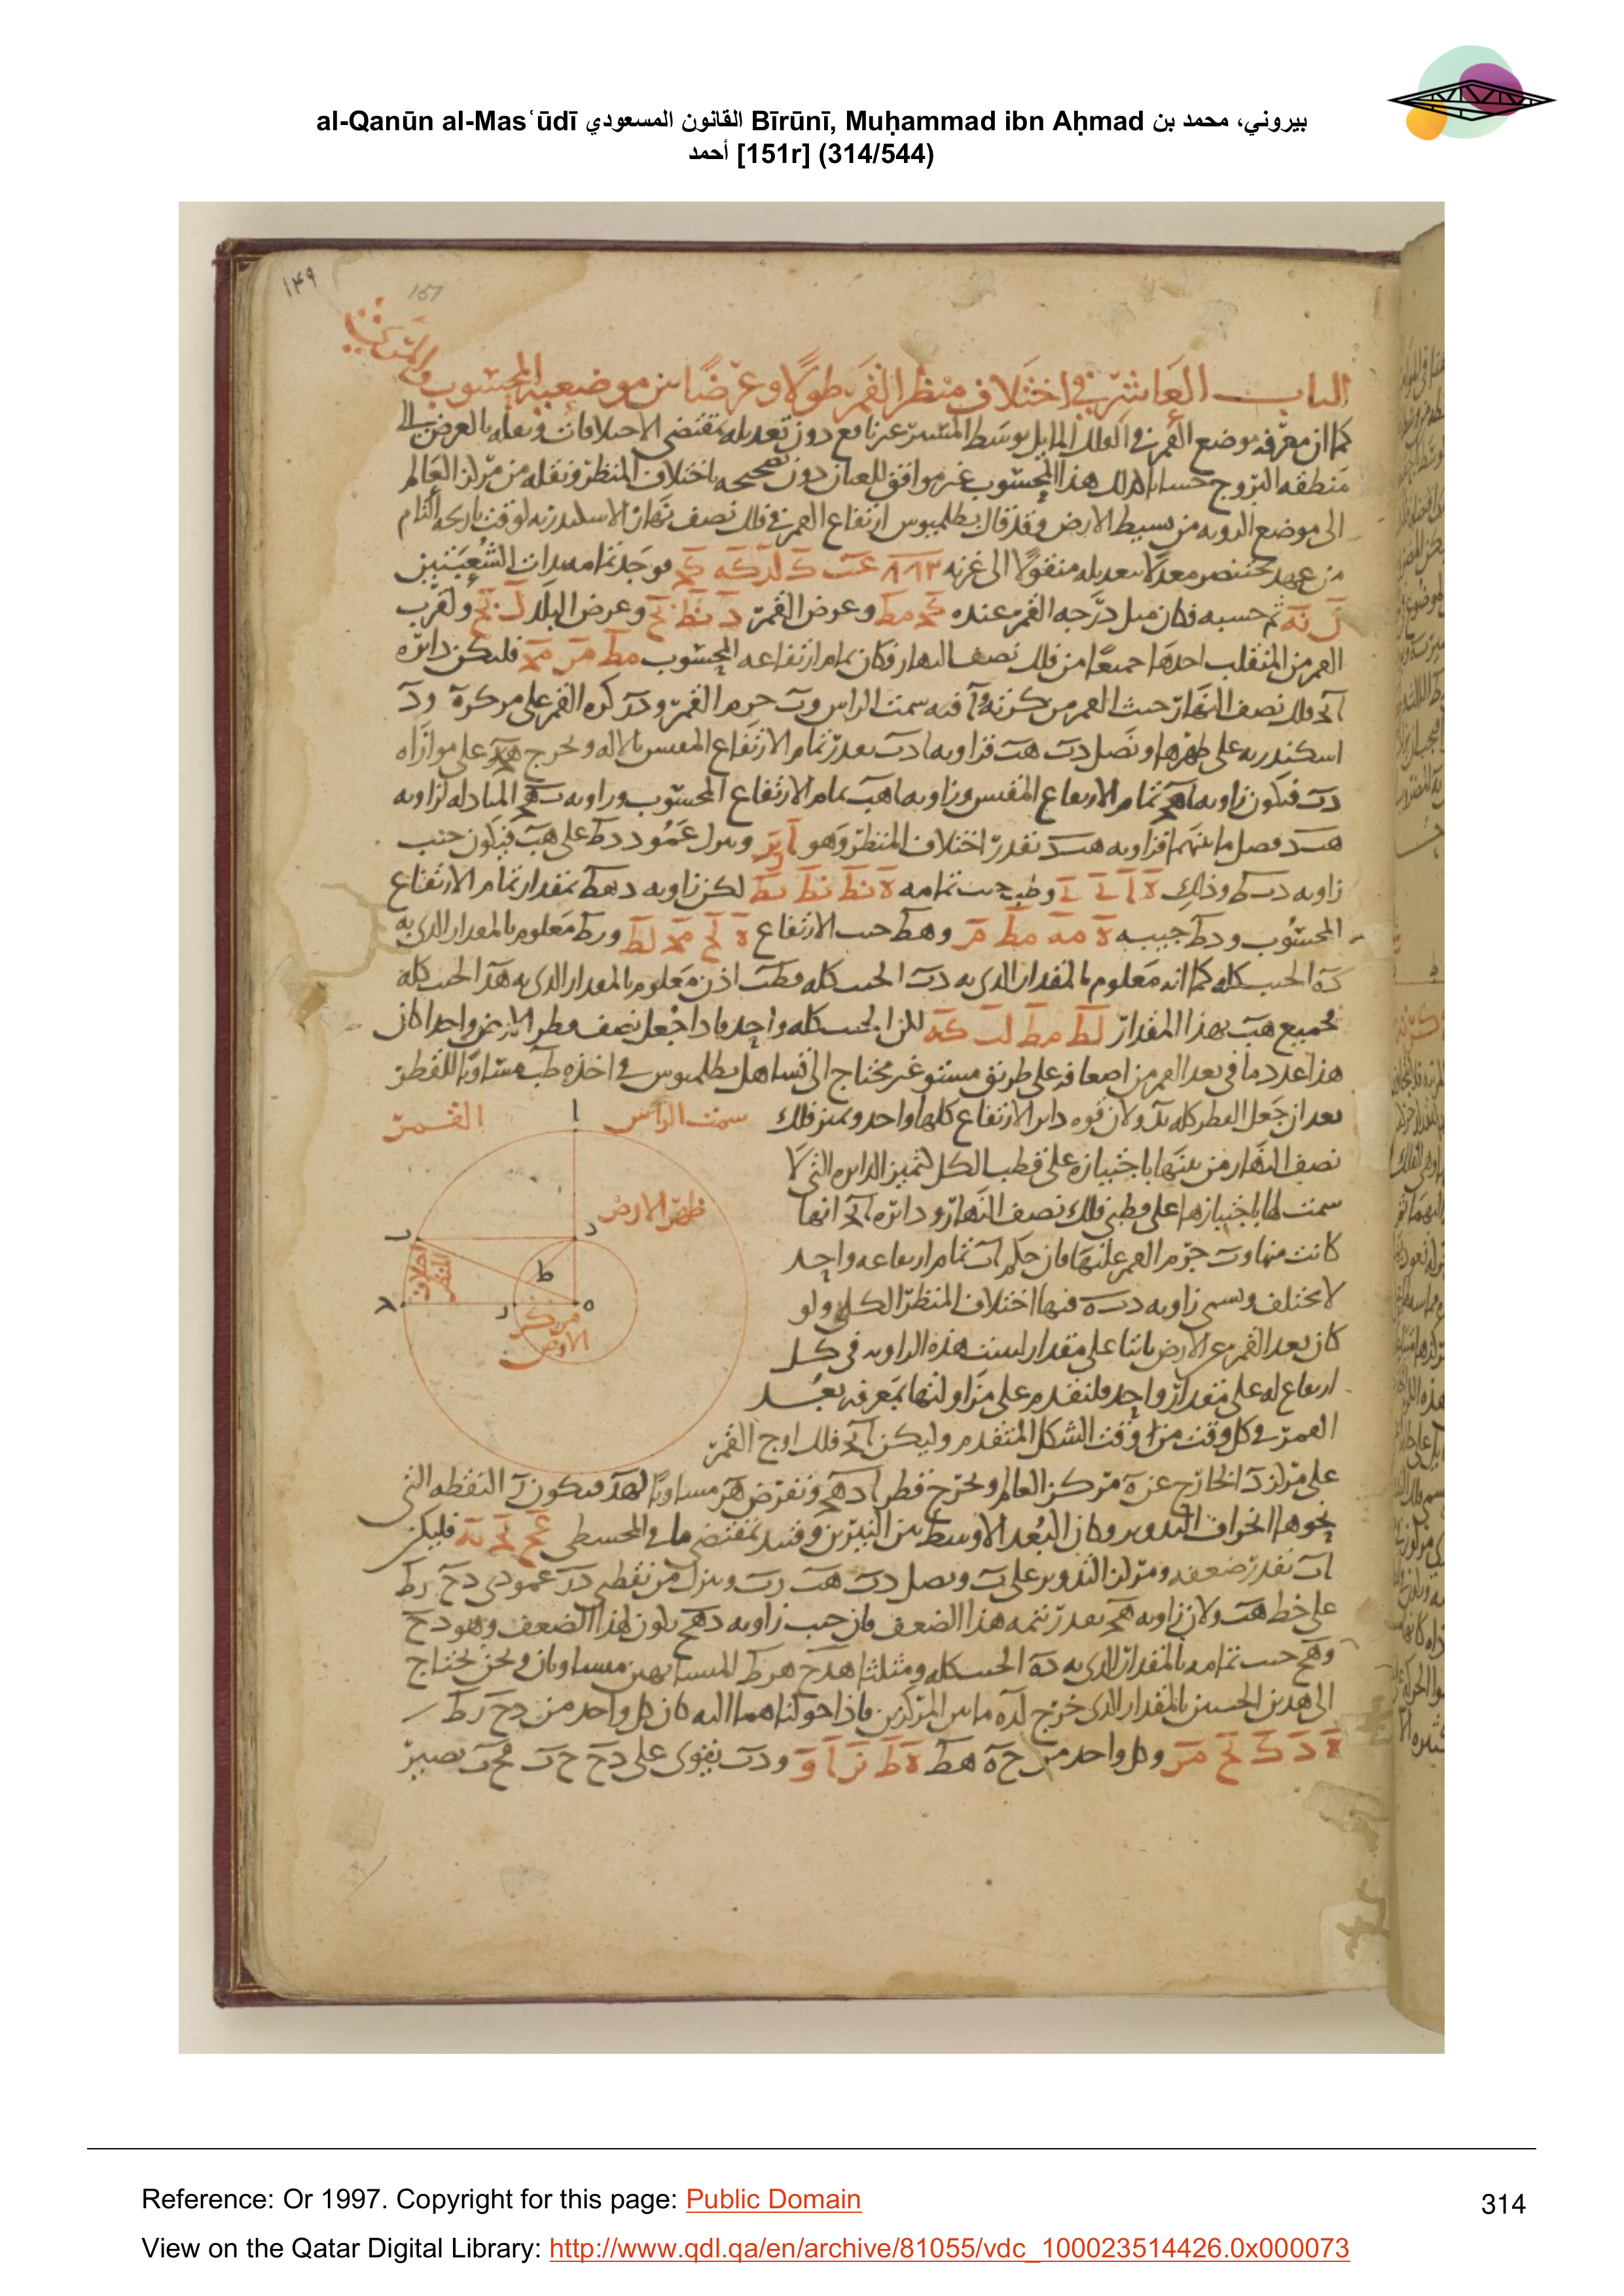 al-Qanūn al-Masʿūdī القانون المسعودي Bīrūnī, Muḥammad ibn Aḥmad بيروني، محمد بن
أحمد [151r] (314/544)
١٤٩
151
الباب العاشر في اختلاف منظر القمر طولا وعرضا بين موضعيه المحسوب والمرئي
كما ان معرفة موضع القمر في الفلك المايل بوسط المستبين غير نافع دون تعديله بمقتضى الاختلافات ونقله بالعرض الى
منطقه البروج حسابا كذلك هذا المحسوب غير موافق للعيان دون تصحيحه باختلاف المنظر ونقله من مركز العالم
الى موضع الرويه من بسيط الارض وقد قال بطلميوس ارتفاع القمر في فلك نصف نهار الاسكندريه لوقت تاريخه التام
من عهد بختنصر معدلا بتعديله منقولا الى غزنه
ل نه ثم حسبه فكان ميل درجه القمر عنده كج مط وعرض القمر د نط نح وعرض البلد ل نح ولقرب
القمر من المنقلب اخذها جميعا من فلك نصف النهار فكان تمام ارتفاعه المحسوب مط مز مج فليكن دائره
اج فلك نصف النهار حيث القمر من كرته وا فيه سمت الراس وب جرم القمر و در كره القمر على مركز ه ود
اسكندريه على ظهرها ونصل دب هب فزاويه ادب بقدر تمام الارتفاع المقيس بالاله ونخرج هج على موازاه
دب فيكون زاويه اهج تمام الارتفاع المقيس وزاويه اهب تمام الارتفاع المحسوب وزاويه بهج المبادله لزاويه
هبد فصل ما بينهما فزاويه هبد بقدر اختلاف المنظر وهو ا ز وننزل عمود دط على هب فيكون جيب
زاويه دبط وذلك وجيب تمامه ه نط نط نط لكن زاويه دهط بمقدار تمام الارتفاع
المحسوب ودط جيبه ه مه مط مز وهط جيب الارتفاع ه لح مج لط ودط معلوم بالمقدار الذي به
ده الجيب كله كما انه معلوم بالمقدار الذي به دب الجيب كله فطب اذن معلوم بالمقدار الذي به هد الجيب كله
فجميع هب بهذا المقدار لط مط لب كه لكن الجيب كله واحد فاذا جعل نصف قطر الارض واحدا كان
هذا عدد ما في بعد القمر من اضعافه على طريق مستو غير محتاج الى تساهل بطلميوس في اخذه طب مساويا للقطر
بعد ان جعل القطر كله بد ولان قوه دائره الارتفاع كلها واحد وتميز فلك
نصف النهار من بينها باجتيازه على قطب الكل لتميز الدايره التي لا
سمت لها باجتيازها على قطبي فلك نصف النهار ودائره اج ايها
كانت منها وب جرم القمر عليها فان حكم اب تمام ارتفاعه واحد
لا يختلف ويسمى زاويه دبه فيها اختلاف المنظر الكلي ولو
كان بعد القمر عن الارض ثابتا على مقدار لثبت هذه الزاويه في كل
ارتفاع له على مقدار واحد فلنقدم على مزاولتها بمعرفه بعد
القمر في كل وقت من اوقت الشكل المتقدم وليكن اج فلك اوج القمر
على مركز د الخارج عن ه مركز العالم ونخرج قطر ادهج ونفرض هز مساويا لهد فيكون ز النقطه التي
نحوها انحراف التدوير وكان البعد الاوسط بين النيرين وقتئذ بمقتضى ما في المجسطي عج لج نه فليكن
اب بقدر ضعفه ومركز التدوير على ب ونصل دب هب زب وننزل من نقطتي د ز عمودي دح زط
على خط هب ولان زاويه بهج بقدر تتمه هذا الضعف فان جيب زاويه دهح يكون لهذا الضعف وهو دح
وهح جيب تمامه بالمقدار الذي به ده الجيب كله ومثلثا هدح هزط المتشابهين متساويان ونحن نحتاج
الى هذين الجيبين بالمقدار الذي خرج لده ما بين المركزين فاذا حولناهما اليه كان كل واحد من دح زط
ه د ك لح مز وكل واحد من حه هط ه ط نز ا و ودب يقوى على دح حب فحب يصير
القمر
ا
سمت الراس
ظهر الارض
ب
د
اختلاف المنظر
ط
ج
ز
ه
مركز
الارض
Reference: Or 1997. Copyright for this page: Public Domain
314
View on the Qatar Digital Library: http://www.qdl.qa/en/archive/81055/vdc_100023514426.0x000073